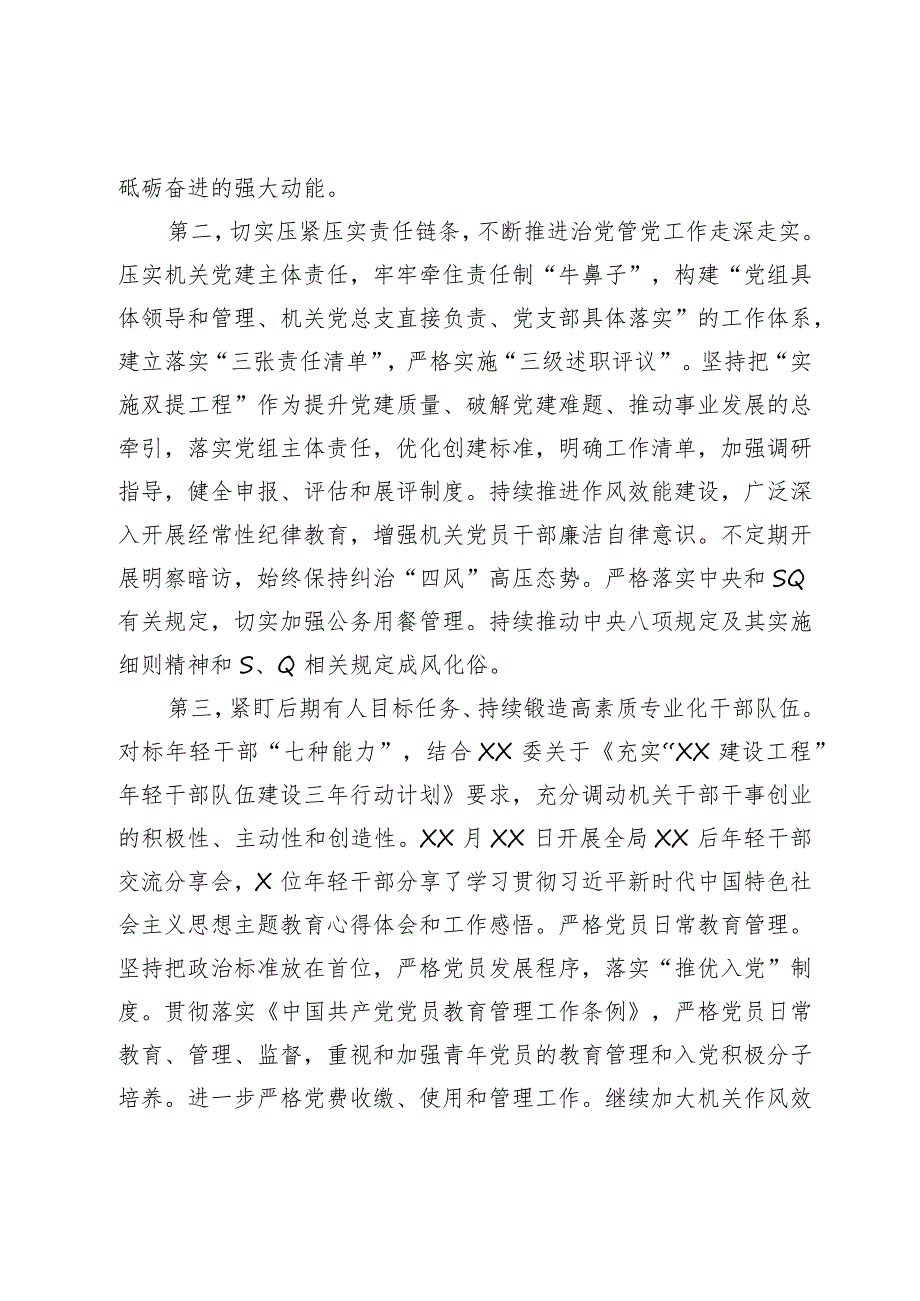 砥砺奋进的强大动能。
第二，切实压紧压实责任链条，不断推进治党管党工作走深走实。
压实机关党建主体责任，牢牢牵住责任制“牛鼻子”，构建“党组具
体领导和管理、机关党总支直接负责、党支部具体落实”的工作体系，
建立落实“三张责任清单”，严格实施“三级述职评议”。坚持把“实
施双提工程”作为提升党建质量、破解党建难题、推动事业发展的总
牵引，落实党组主体责任，优化创建标准，明确工作清单，加强调研
指导，健全申报、评估和展评制度。持续推进作风效能建设，广泛深
入开展经常性纪律教育，增强机关党员干部廉洁自律意识。不定期开
展明察暗访，始终保持纠治“四风”高压态势。严格落实中央和 SQ
有关规定，切实加强公务用餐管理。持续推动中央八项规定及其实施
细则精神和 S、Q 相关规定成风化俗。
第三，紧盯后期有人目标任务、持续锻造高素质专业化干部队伍。
对标年轻干部“七种能力”，结合 XX 委关于《充实“XX 建设工程”
年轻干部队伍建设三年行动计划》要求，充分调动机关干部干事创业
的积极性、主动性和创造性。XX 月 XX 日开展全局 XX 后年轻干部
交流分享会，X 位年轻干部分享了学习贯彻习近平新时代中国特色社
会主义思想主题教育心得体会和工作感悟。严格党员日常教育管理。
坚持把政治标准放在首位，严格党员发展程序，落实“推优入党”制
度。贯彻落实《中国共产党党员教育管理工作条例》，严格党员日常
教育、管理、监督，重视和加强青年党员的教育管理和入党积极分子
培养。进一步严格党费收缴、使用和管理工作。继续加大机关作风效